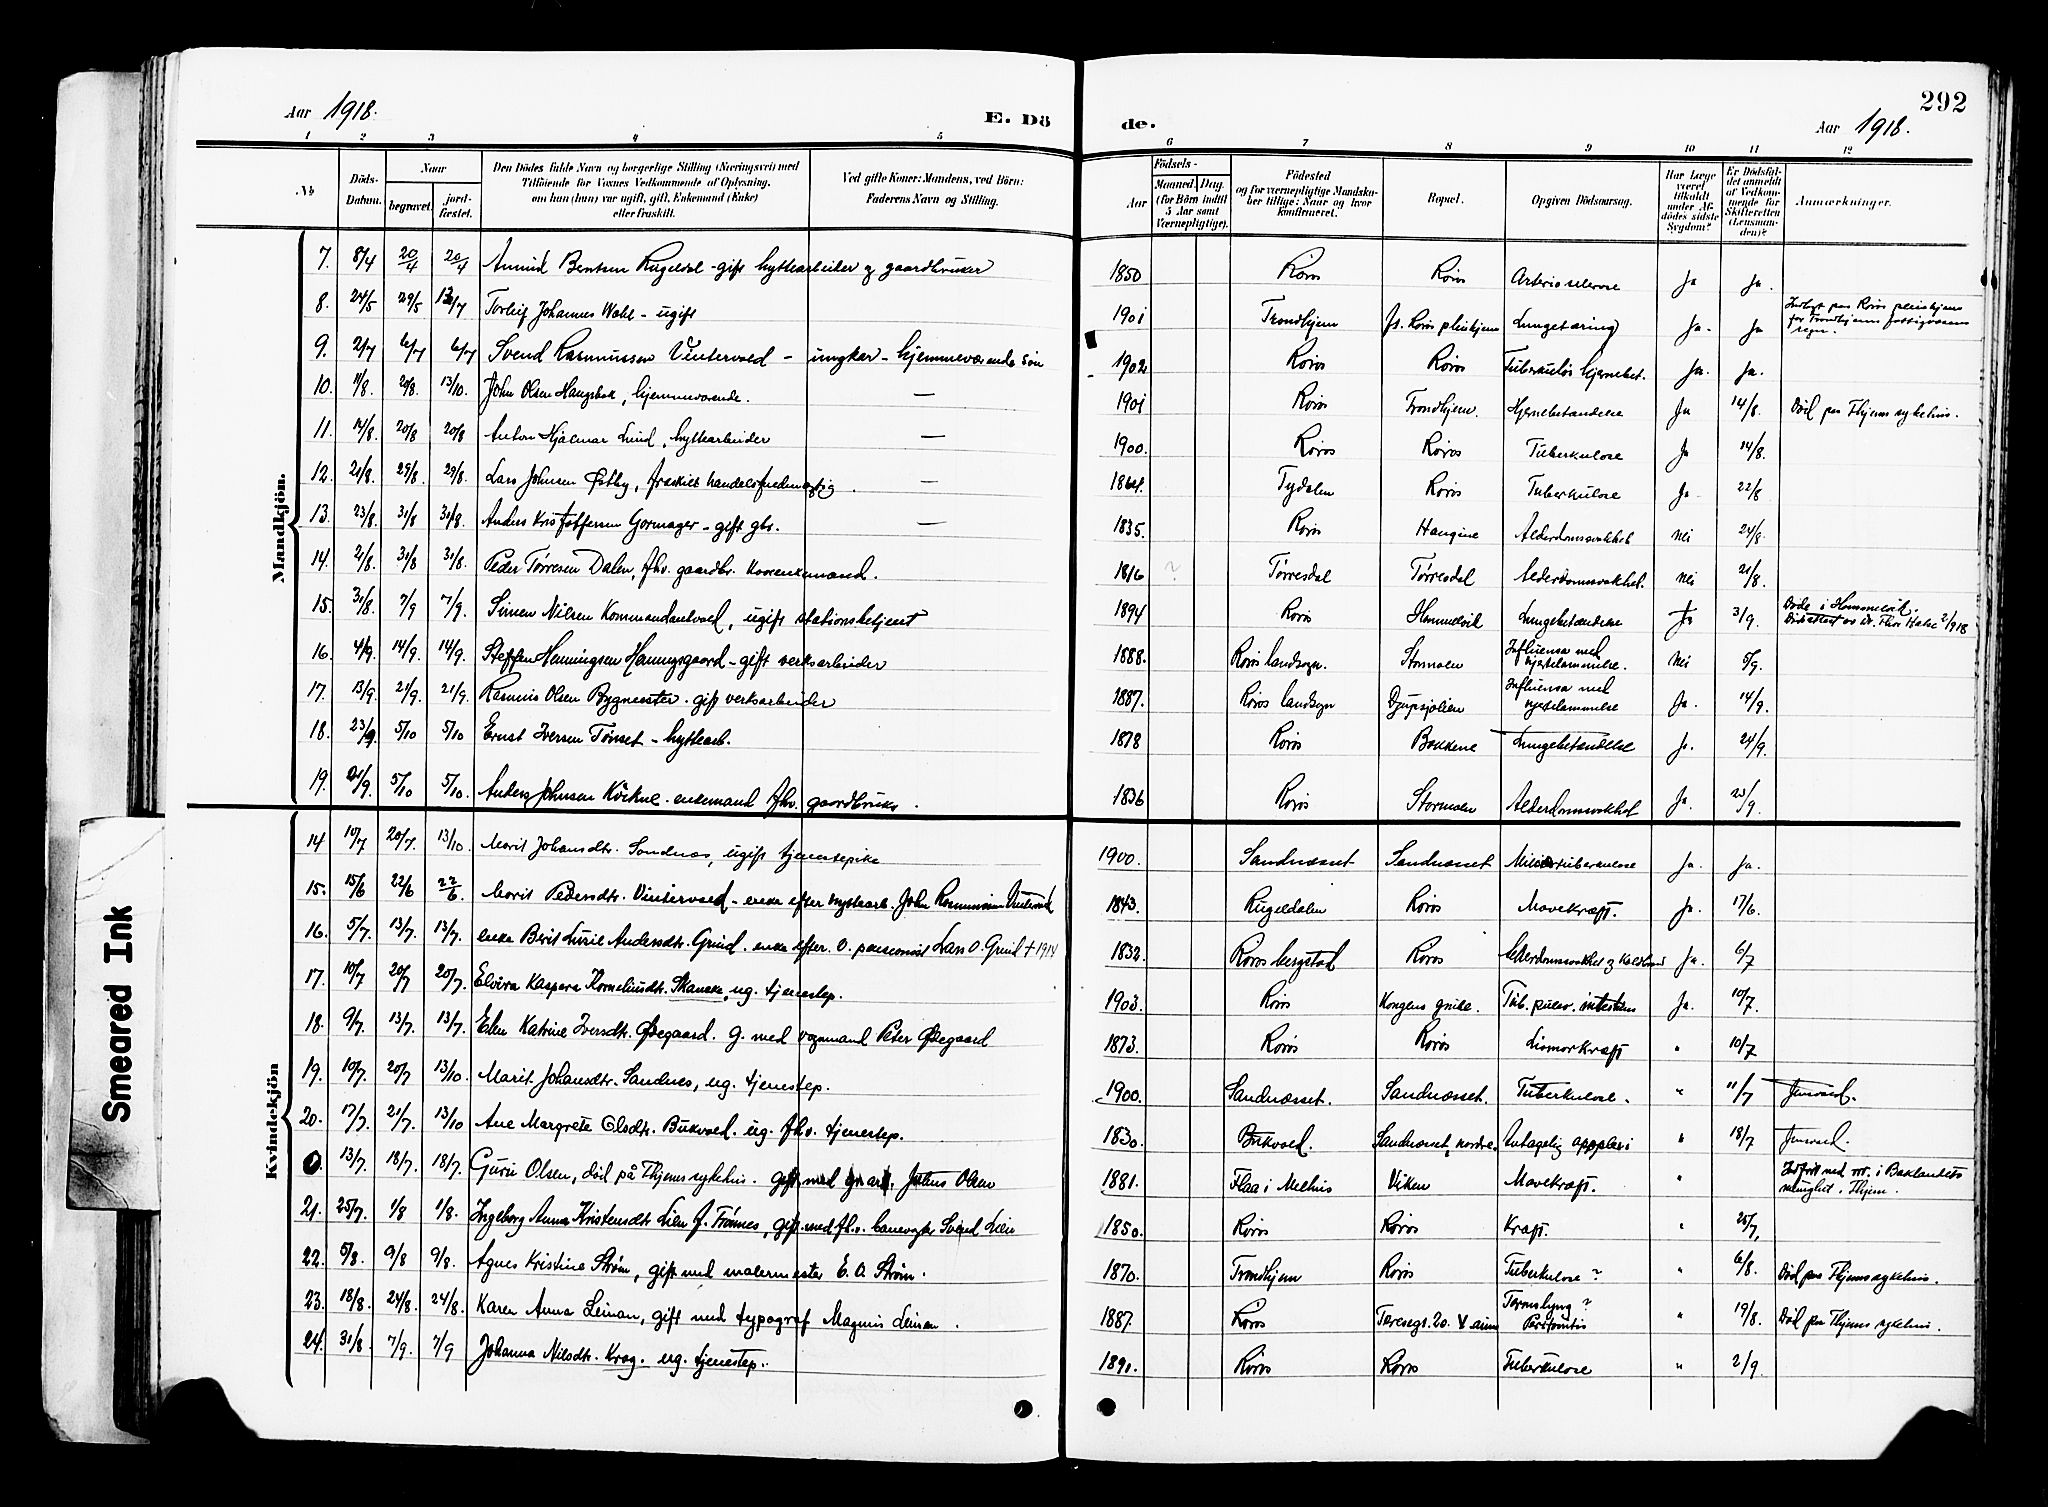 292
Aar 1918.
E. Dö
de.
Aar 1918.
1 2 3 4 5 6 7 8 9 10 11 12
No.
Döds-Datum.
Naar
begravet.
jord-fæstet.
Den Dödes fulde Navn og borgerlige Stilling (Næringsvei) med
Tilföiende for Voxnes Vedkommende af Oplysning,
om han (hun) var ugift, gift, Enkemand (Enke)
eller fraskilt.
Ved gifte Koner: Mandens, ved Börn:
Faderens Navn og Stilling.
Födsels-
Aar
Maaned. Dag.
(for Börn indtil
5 Aar samt
Værnepligtige).
Födested
og for værnepligtige Mandska-
ber tillige: Naar og hvor
konfirmeret.
Bopæl.
Opgiven Dödsaarsag.
Har Læge
været
tilkaldt
under Af-
dödes sidste
Sygdom?
Er Dödsfal-
det anmeldt
af Vedkom-
mende for
Skifteretten
(Lensman-
den)?
Anmærkninger.
Mandkjön.
7. 8/4 20/4 20/4 Bentsen Rugeldal - gift hyttearbeider og gaardbruker 1850 Røros Røros Arteriosclerose Ja Ja.
8. 24/5 29/5 Torleif Johannes Wahl - ugift 1901 Trondhjem Røros pleiehjem Lungetæring Ja. Ja
9. 2/7 6/7 6/7 Svend Rasmussen Vintervold - ungkar - hjemmeværende søn 1902 Røros Røros Tuberkuløs hjernebet. Ja. Ja.
10. 11/8. 20/8. 13/10. John Olsen, hjemmeværende. — 1901 Røros Trondhjem. Hjernebetændelse Ja 14/8. Død paa Thjems sykehus.
11. 14/8. 20/8 20/8 Anton Hjalmar Lund, hyttearbeider — 1900. Røros Røros Tuberkulose Ja 14/8.
12. 21/8. 29/8 29/8. Lars Johnsen Østby, fraskilt handelsfuldmægtig. — 1864. Tydalen Røros Tuberkulose Ja. 22/8
13. 23/8. 31/8 31/8. Anders Kristoffersen Gormager - gift gbr. — 1835. Røros Haugene Alderdomssvakhet nei 24/8.
14. 21/8. 31/8 31/8. Peder Tørresen Dalen, fhv. gaardbr. 1816 ? Tørresdal Tørresdal Alderdomssvakhet. nei 21/8.
15. 31/8. 7/9 7/9. Simen Nilsen Kommandantvold, ugift stationsbetjent 1894 Røros Hommelvik Lungebetændelse Ja 3/9. Døde i Hommelvik.
16. 4/9. 14/9. 14/9. Steffen Henningsen Henningsgaard - gift verksarbeider 1888. Røros landsogn. Stormoen Influensa med hjertelammelse. nei 5/9.
17. 13/9. 21/9. 21/9. Rasmus Olsen Bygmester. gift verksarbeider 1887. Røros landsogn Djupsjølien Influensa med hjertelammelse Ja. 14/9.
18. 23/9. 5/10 5/10 Ernst Iversen Tønset - hyttearb. 1878 Røros Bakkene Lungebetændelse Ja. 24/9.
19. 21/9. 5/10 5/10. Anders Johnsen - enkemand fhv. gaardbruker. 1836 Røros Stormoen Alderdomssvakhet Ja. 23/9.
Kvindekjön
14 10/7 20/7. 13/10. Marit Johansdtr. Sandnes, ugift tjenestepike 1900. Sandnesset Sandnesset Miliærtuberkulose Ja. Ja.
15. 15/6 22/6 22/6. Marit Pedersdtr. Vintervold - enke efter hyttearb. John Rasmussen Vintervold 1843. Rugeldalen Røros Mavekræft. Ja. 17/6.
16. 5/7. 13/7. 13/7. enke Berit Lusie Andersdtr. Grind. enke efter. pensionist Lars O. Grind + 1914 1832. Røros bergstad Røros Alderdomssvakhet og Koldbrand Ja. 6/7
17. 10/7 20/7 20/7. Elvira Kaspara Korneliusdtr. Skancke, ug. tjenestep. 1903. Røros Kongens grube. Tub. pulm. intestinus Ja. 10/7.
18. 9/7. 13/7. 13/7. Elen Katrine Iversdtr. Ødegaard. g. med vognmand Peter Ødegaard 1873. Røros Røros Livmorkræft " 10/7
19. 10/7. 20/7 13/10. Marit Johansdtr. Sandnes, ug. tjenestep. 1900. Sandnesset. Sandnesset. Tuberkulose. " 11/7
20. 17/7. 21/7. 13/10 Ane Margrete Olsdtr. Bukvold. ug. fhv. tjenestep. 1830. Bukvold. Sandnesset, nordre. Antagelig appplexi " 18/7
0. 13/7. 18/7. 18/7. Guri Olsen, død på Thjems sykehus. gift med Julius Olsen 1881. Flaa i Melhus Viken Mavekræft. "
21. 25/7. 1/8 1/8. Ingeborg Anna Kristensdtr Lien f. Tønnes, gift med fhv. banevogter Svend Lien 1850. Røros Røros Kræft. " 25/7,
22. 5/8. 9/8 9/8. Agnes Kristine Strøm, gift med malermester E. O. Strøm. 1870. Trondhjem Røros Tuberkulose? " 6/8. Død paa Thjems sykehus.
23. 18/8. 24/8. 24/8. Karen Anna Leinan, gift med typograf Magnus Leinan. 1887. Røros Peritonitis " 19/8. Død paa Thjems sykehus.
24. 31/8. 7/9. 7/9 Johanna Nilsdtr. Krog. ug. tjenestep. 1890. Røros Røros Tuberkulose " 2/9.
Smeared Ink